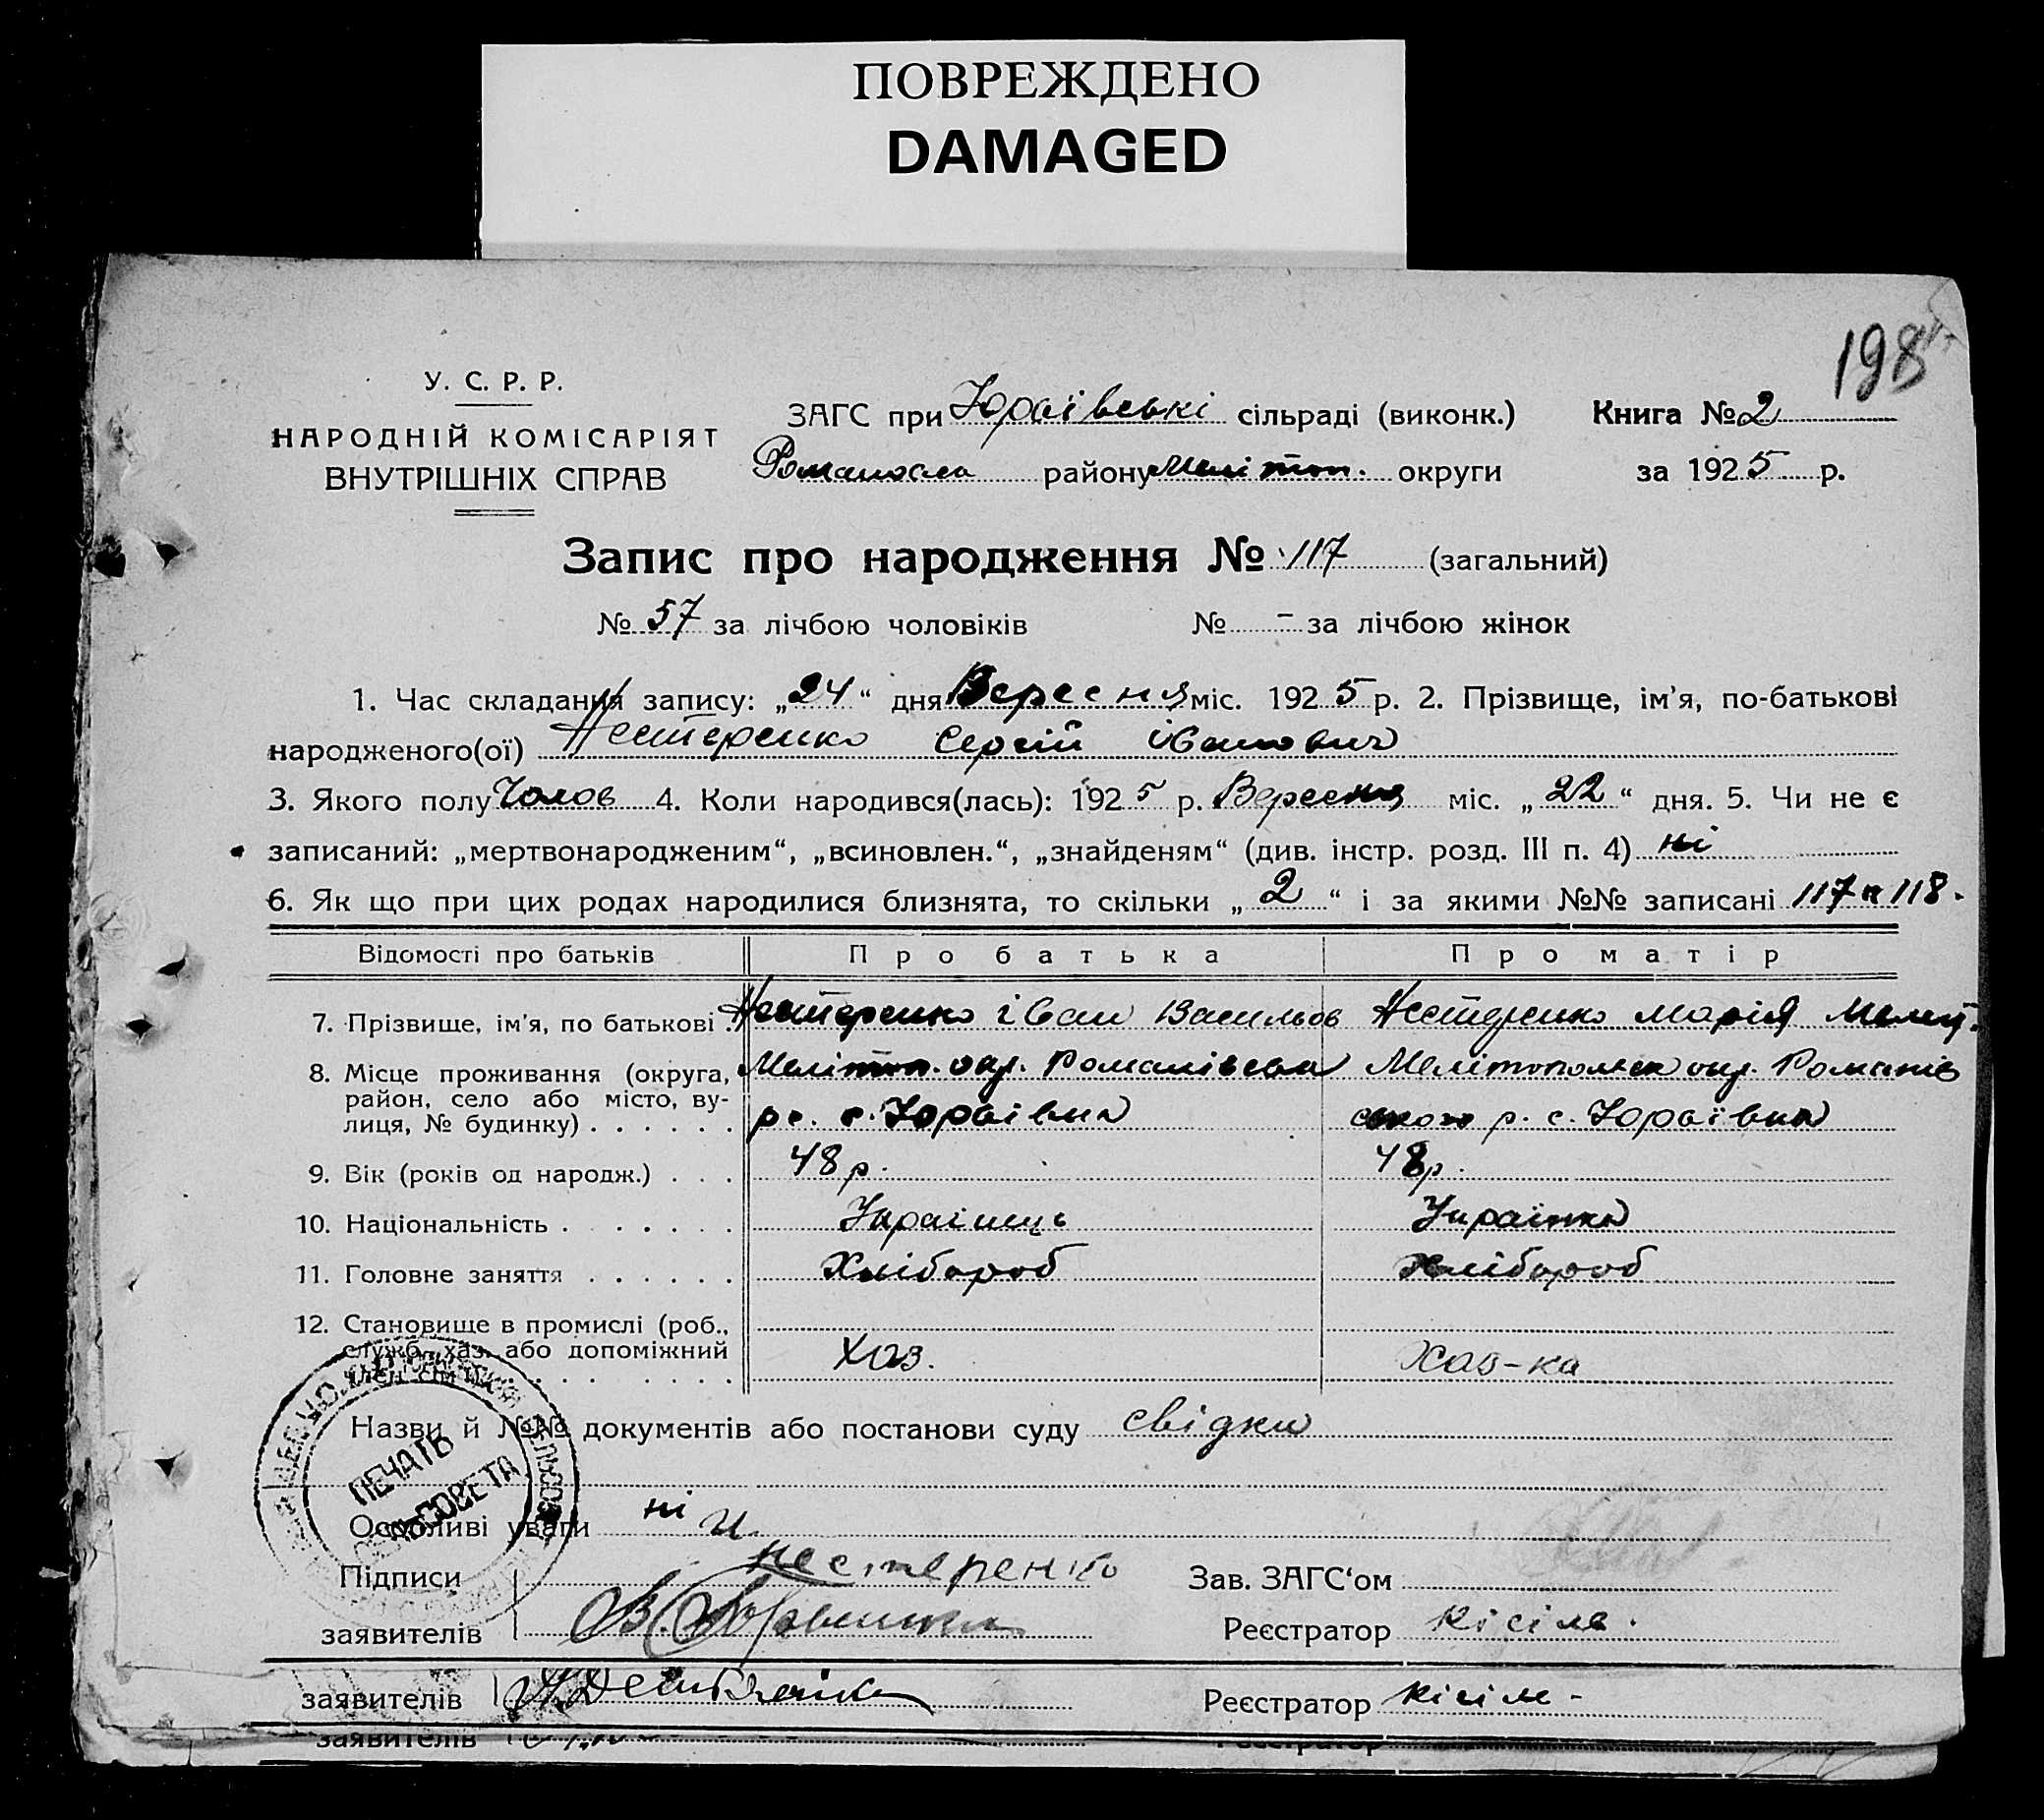 ПОВРЕЖДЕНО
DAMAGED
198
У. С. Р. Р.
НАРОДНІЙ КОМІСАРІЯТ
ВНУТРІШНІХ СПРАВ
ЗАГС при Юраївські сільраді (виконк.) Книга № 2
району Мелітоп. округи за 1925 р.
Запис про народження № 117 (загальний)
№ 57 за лічбою чоловіків № – за лічбою жінок
1. Час складання запису: „24“ дня Вересня міс. 1925 р. 2. Прізвище, ім'я, по-батькові
народженого(ої) Нестеренко Сергій Іванович
3. Якого полу Чолов 4. Коли народився(лась): 1925 р. Вересня міс. „22“ дня. 5. Чи не є
записаний: „мертвонародженим“, „всиновлен.“, „знайденям“ (див. інстр. розд. III п. 4) ні
6. Як що при цих родах народилися близнята, то скільки „2“ і за якими №№ записані 117 и 118.
Відомості про батьків Про батька Про матір
7. Прізвище, ім'я, по батькові . Нестеренко Іван Васильов Нестеренко Марія
8. Місце проживання (округа, Мелітоп. окр. Романівська Мелітопольск окр. Романів
район, село або місто, ву- р. с. Юраївка ського р. с. Юраївка
лиця, № будинку) . . . . . .
9. Вік (років од народж.) . . . 48 р. 48 р.
10. Національність . . . . . . . Українець Українка
11. Головне заняття . . . . . . Хлібороб Хлібороб
12. Становище в промислі (роб.,
служб., хаз. або допоміжний Хаз. Хаз-ка
член сім'ї) . . . . . . . .
Назви й №№ документів або постанови суду свідки
ПЕЧАТЬ
СЕЛЬСОВЕТА
Особливі уваги ні
Підписи Нестеренко Зав. ЗАГС‘ом
заявителів Реєстратор Кісіль.
заявителів Реєстратор Кісіль -
заявителів Реєстратор